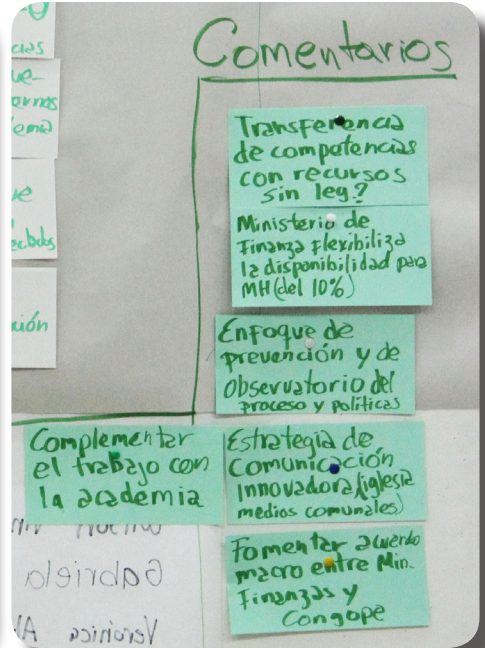 Comentarios
Transferencia
de competencias
con recursos
sin ley?
Ministerio de
Finanza flexibiliza
la disponibilidad para
MH (del 10%)
Enfoque de
prevención y de
Observatorio del
proceso y políticas
Complementar
el trabajo con
la academia
Estrategia de
Comunicación
innovadora (iglesia
medios comunales)
Fomentar acuerdo
macro entre Min.
Finanzas y
Congope
Gabriela
Verónica